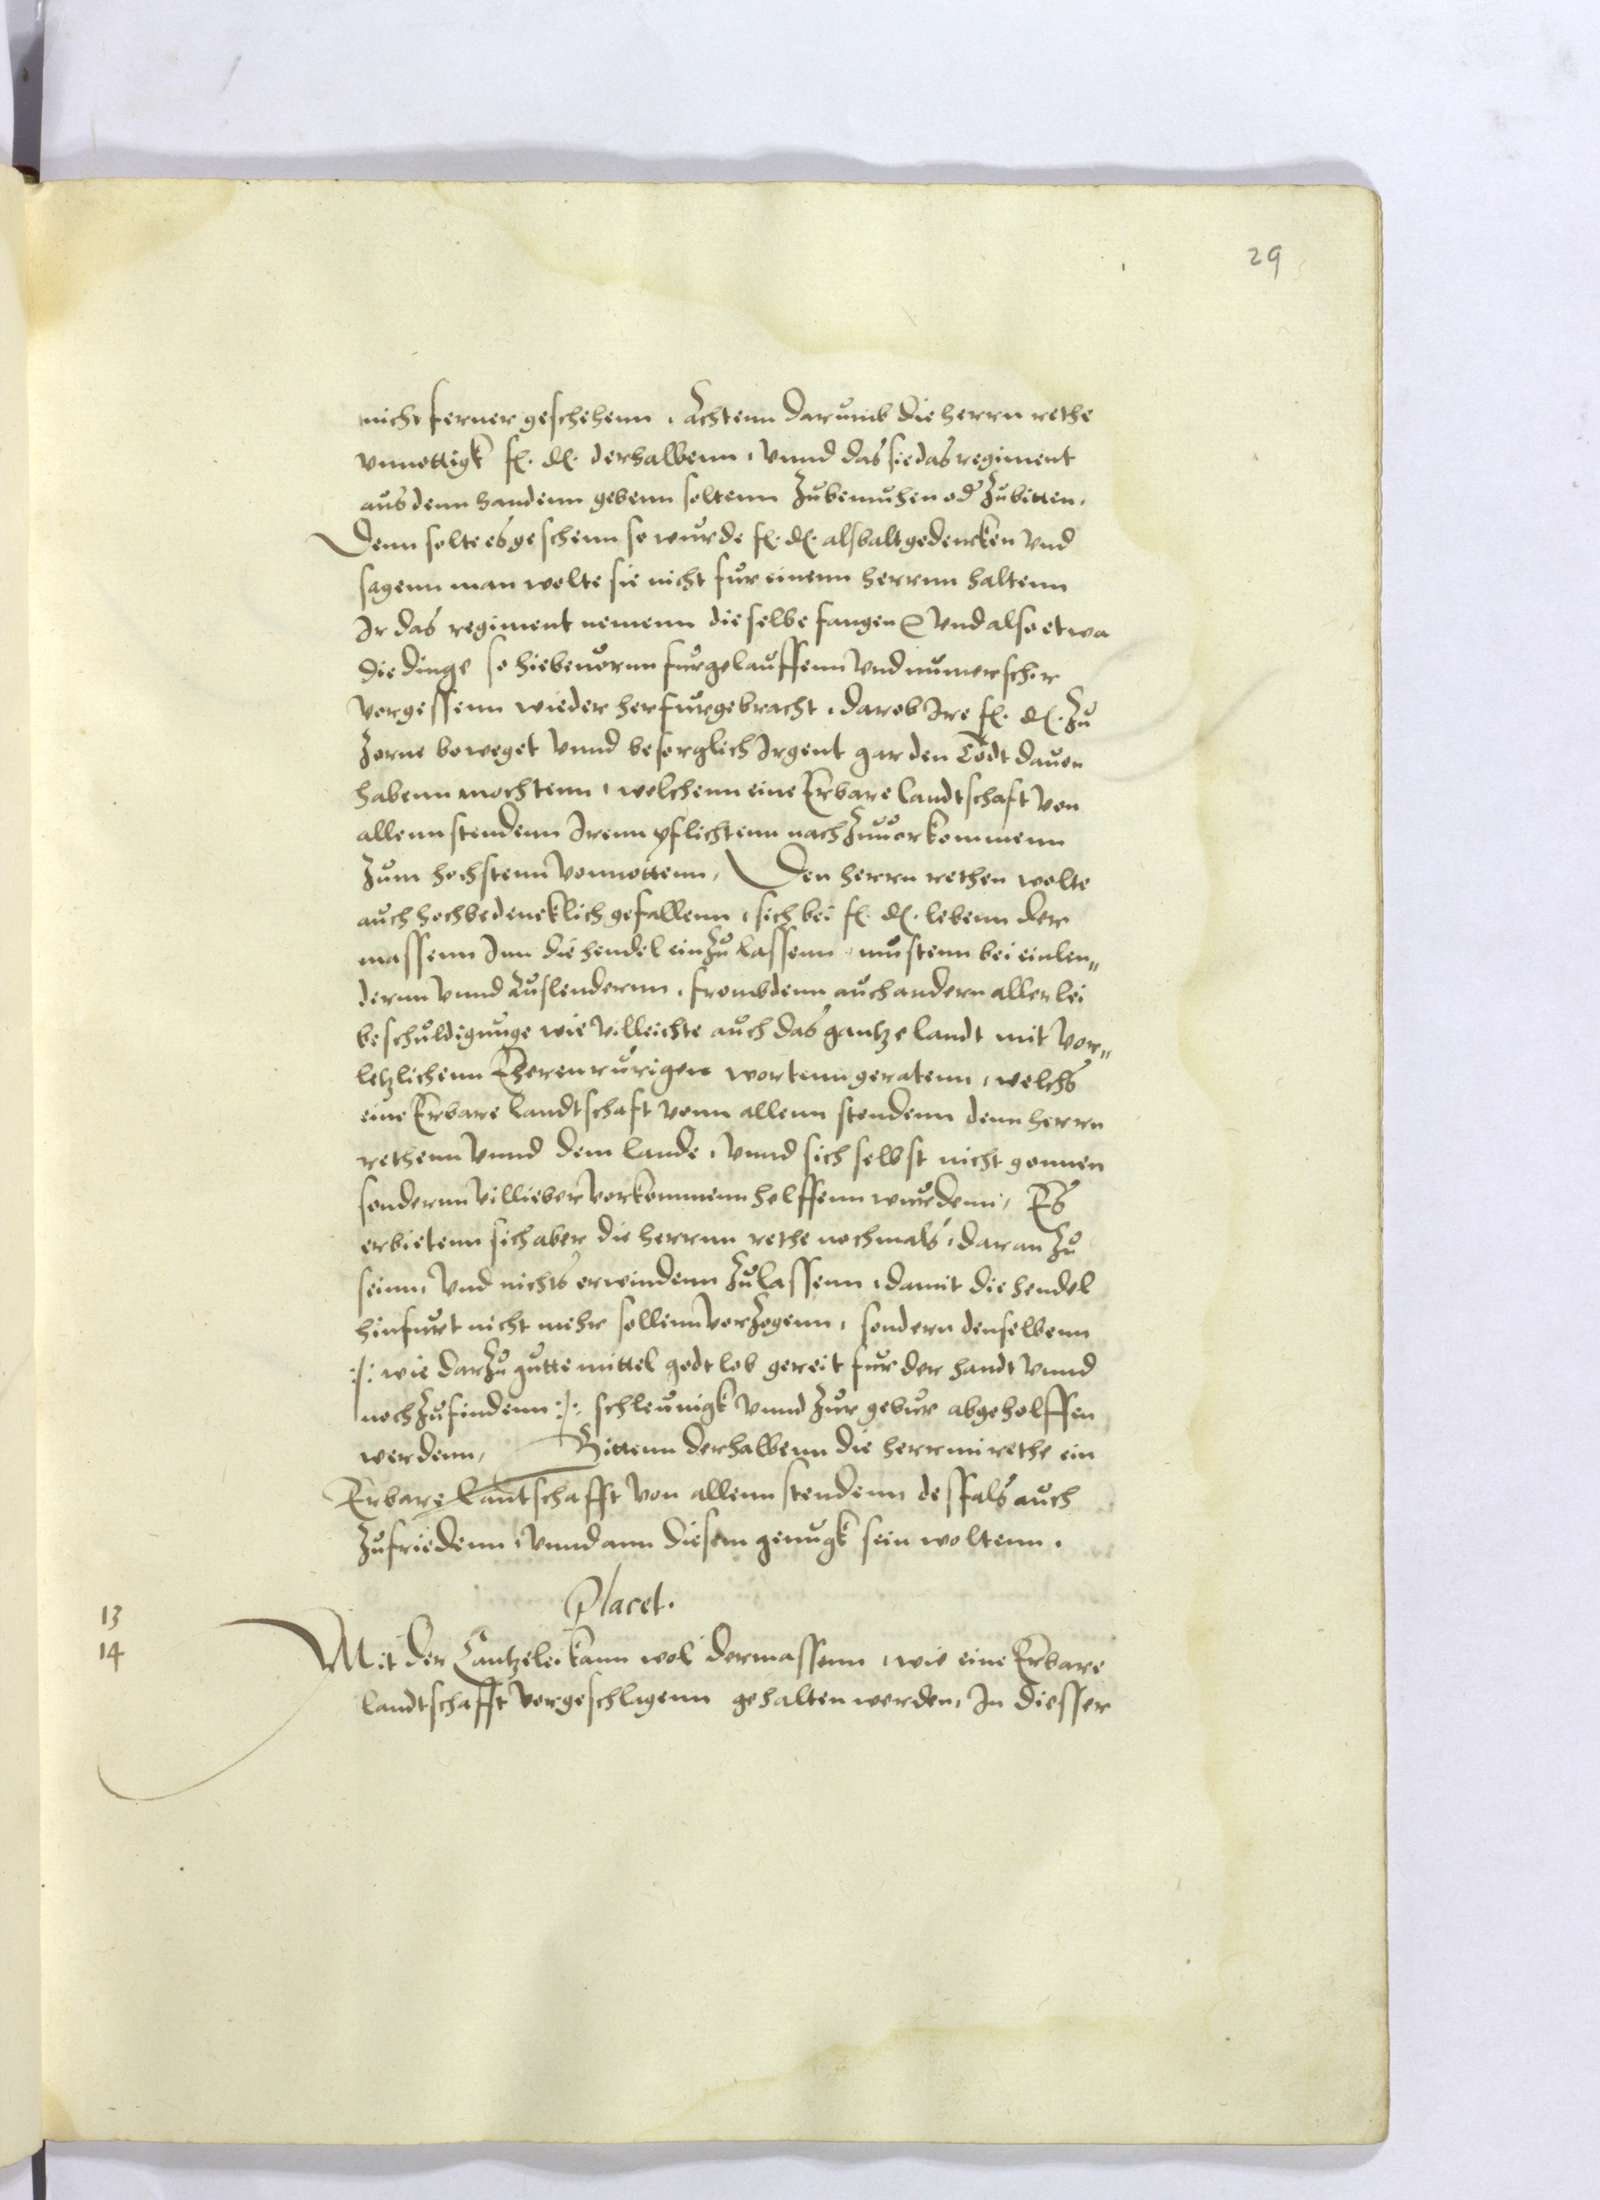 29
nicht ferner geschehenn, Achtenn darumb die herrn rethe
vnnottigk f. d. derhalbenn, vnnd das sie das regiment
aus denn handenn gebenn soltenn zubemuhen od zubitten,
Denn solte es geschenn so wurde f. d. alsbalt gedencken vnd
sagenn man wolte sie nicht fur einenn herrnn haltenn
Ir das regiment nemenn die selbe fangen vnd also etwa
die dinge so hiebeuornn furgelauffenn vnd numer schir
vorgessenn wieder herfurgebracht, darob Ire f. d. zu
zorne beweget vnnd besorglich Irgent gar den Todt dauon
habenn mochtenn, welchenn eine Erbare landtschaft von
allenn stendenn Irenn pflichtenn nach zuuorkommenn
zum hochstenn vonnottenn, Den herrn rethen wolte
auch hochbedencklich gefallenn, sich bei f. d. lebenn der
massenn Inn die hendel einzulassenn, mustenn bei einlen„
dernn vnnd Auslendernn, frombdenn auch andern allerlei
beschuldigunge wie villeichte auch das gantze landt mit vor„
letzlichenn Eherenrurigen wortenn geratenn, welchs
eine Erbare landtschaft vonn allenn stendenn denn herrn
rethenn vnnd dem lande, vnnd sich selbst nicht gonnen
sondernn villieber vorkommenn helffenn wurdenn, Es
erbietenn sich aber die herrnn rethe nochmals, daran zu
seinn, vnd nichts erwindenn zulassenn, damit die hendel
hinfurt nicht mehr sollenn vorzogenn, sondern denselbenn
:/: wie darzu gutte mittel godt lob gereit fur der handt vnnd
noch zufindenn :/: schleunigk vnnd zur gebur abgeholffen
werdenn, Bittenn derhalbenn die herrnn rethe ein
Erbare Lantschafft von allenn stendenn desfals auch
zufriedenn, vnnd ann diesem genugk sein woltenn.
Placet.
13
14
Mit der Cantzelei kann wol dermassenn, wie eine Erbare
landtschafft vorgeschlagenn gehalten werden, In diesser